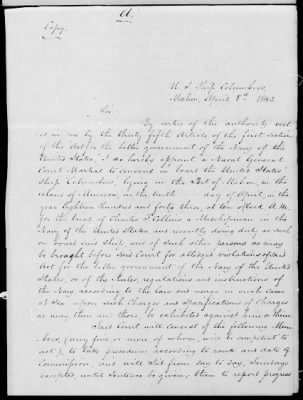 A.
Copy.
U. S. Ship Columbus,
Mahon, April 8th 1843.
Sir,
By virtue of the authority vest
ed in me by the thirty fifth Article of the first Section
of the Act for the better government of the Navy of the
United States, I do hereby appoint a Naval General
Court Martial to convene on board the United States
Ship Columbus, lying in the Port of Mahon, in the
island of Minorca, on the tenth day of April, in the
year Eighteen hundred and forty three, at ten o'clock A.M.
for the trial of Charles F. Collins a Midshipman in the
Navy of the United States and recently doing duty as such
on board said Ship, and of such other persons as may
be brought before said Court for alleged violations of said
Act for the better government of the Navy of the United
States, or of the rules, regulations and instructions of
the Navy according to the laws and usages in such cases
at Sea upon such Charges and Specifications of Charges
as may then and there, be exhibited against him or them.
Said Court will consist of the following Mem
bers, (any five, or more of whom, will be competent to
act), to take precedence according to rank and date of
Commission, and will sit from day to day, Sundays
excepted, until Sentence be given, then to report progress